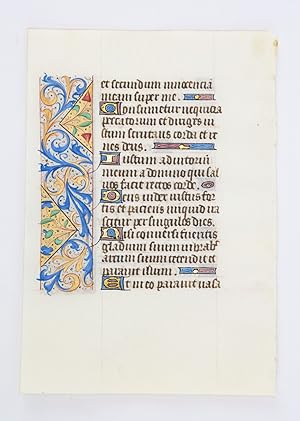 et secundum innocencia
meam super me.
Consumetur nequicia
peccatorum et diriges iu
stum scrutans corda et re
nes deus.
Iustum adiutorium
meum a domino qui sal
uos facit rectos corde.
Deus iudex iustus for
tis et paciens nunquid ira
scetur per singulos dies.
Nisi conuersi fueritis
gladium suum uibrabit
arcum suum tetendit et
parauit illum.
Et in eo parauit uasa